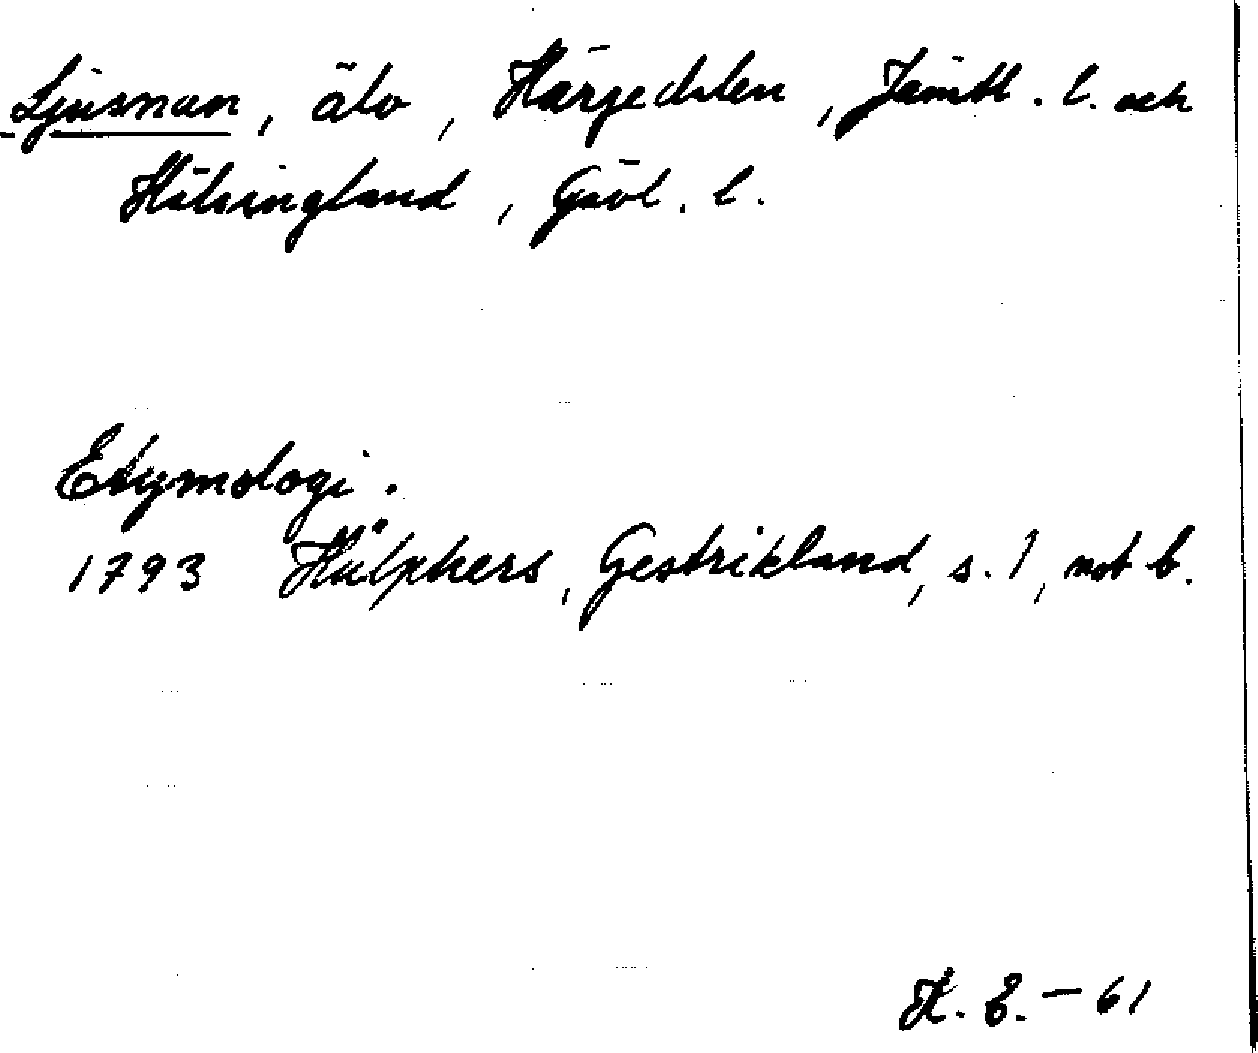 Ljusnan, älv, Härjedalen, Jämtl. l. och
Hälsingland, Gävl. l.
Etymologi.
1793 Hülphers, Gestrikland, s. 1, not b.
H. E. - 61